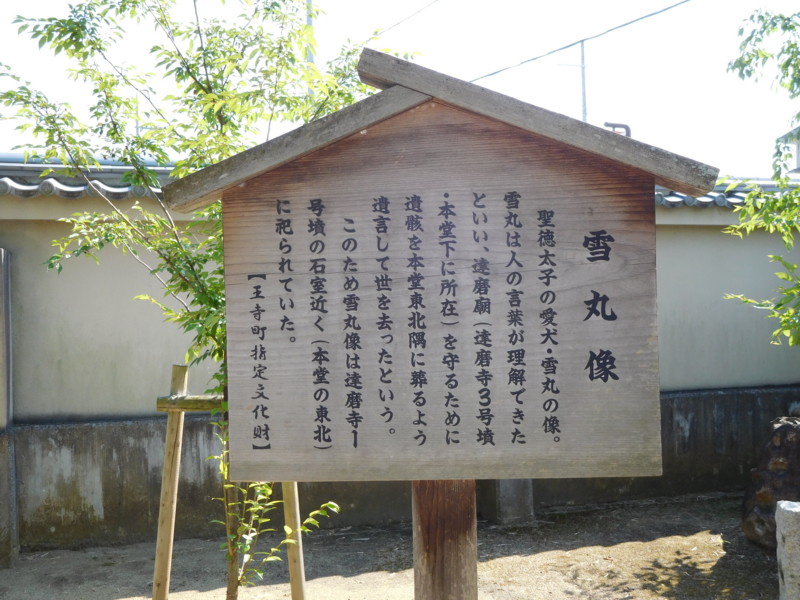 雪丸像
聖徳太子の愛犬・雪丸の像。
雪丸は人の言葉が理解できた
といい、達磨廟(達磨寺3号墳
・本堂下に所在)を守るために
遺骸を本堂東北隅に葬るよう
遺言して世を去ったという。
このため雪丸像は達磨寺1
号墳の石室近く(本堂の東北)
に祀られていた。
【王寺町指定文化財】